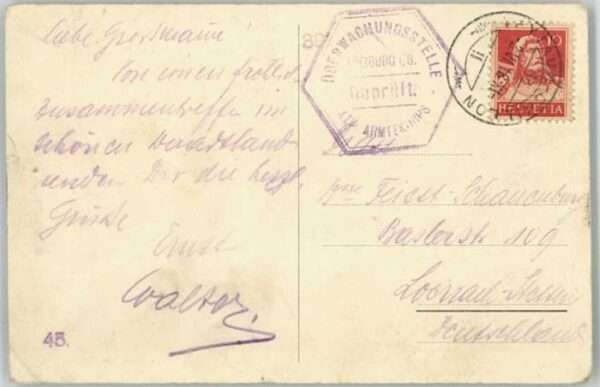 Liebe Grossmama!
Von einem frohen
Zusammentreffen im
schönen Waadtland
senden Dir die herzl.
Grüsse
Ernst
Walter.
45.
ÜBERWACHUNGSSTELLE
Geprüft.
ARMEEKORPS
HELVETIA
Feist-Schauenburg
Baslerstr 109
Loerrach-Stetten
Deutschland